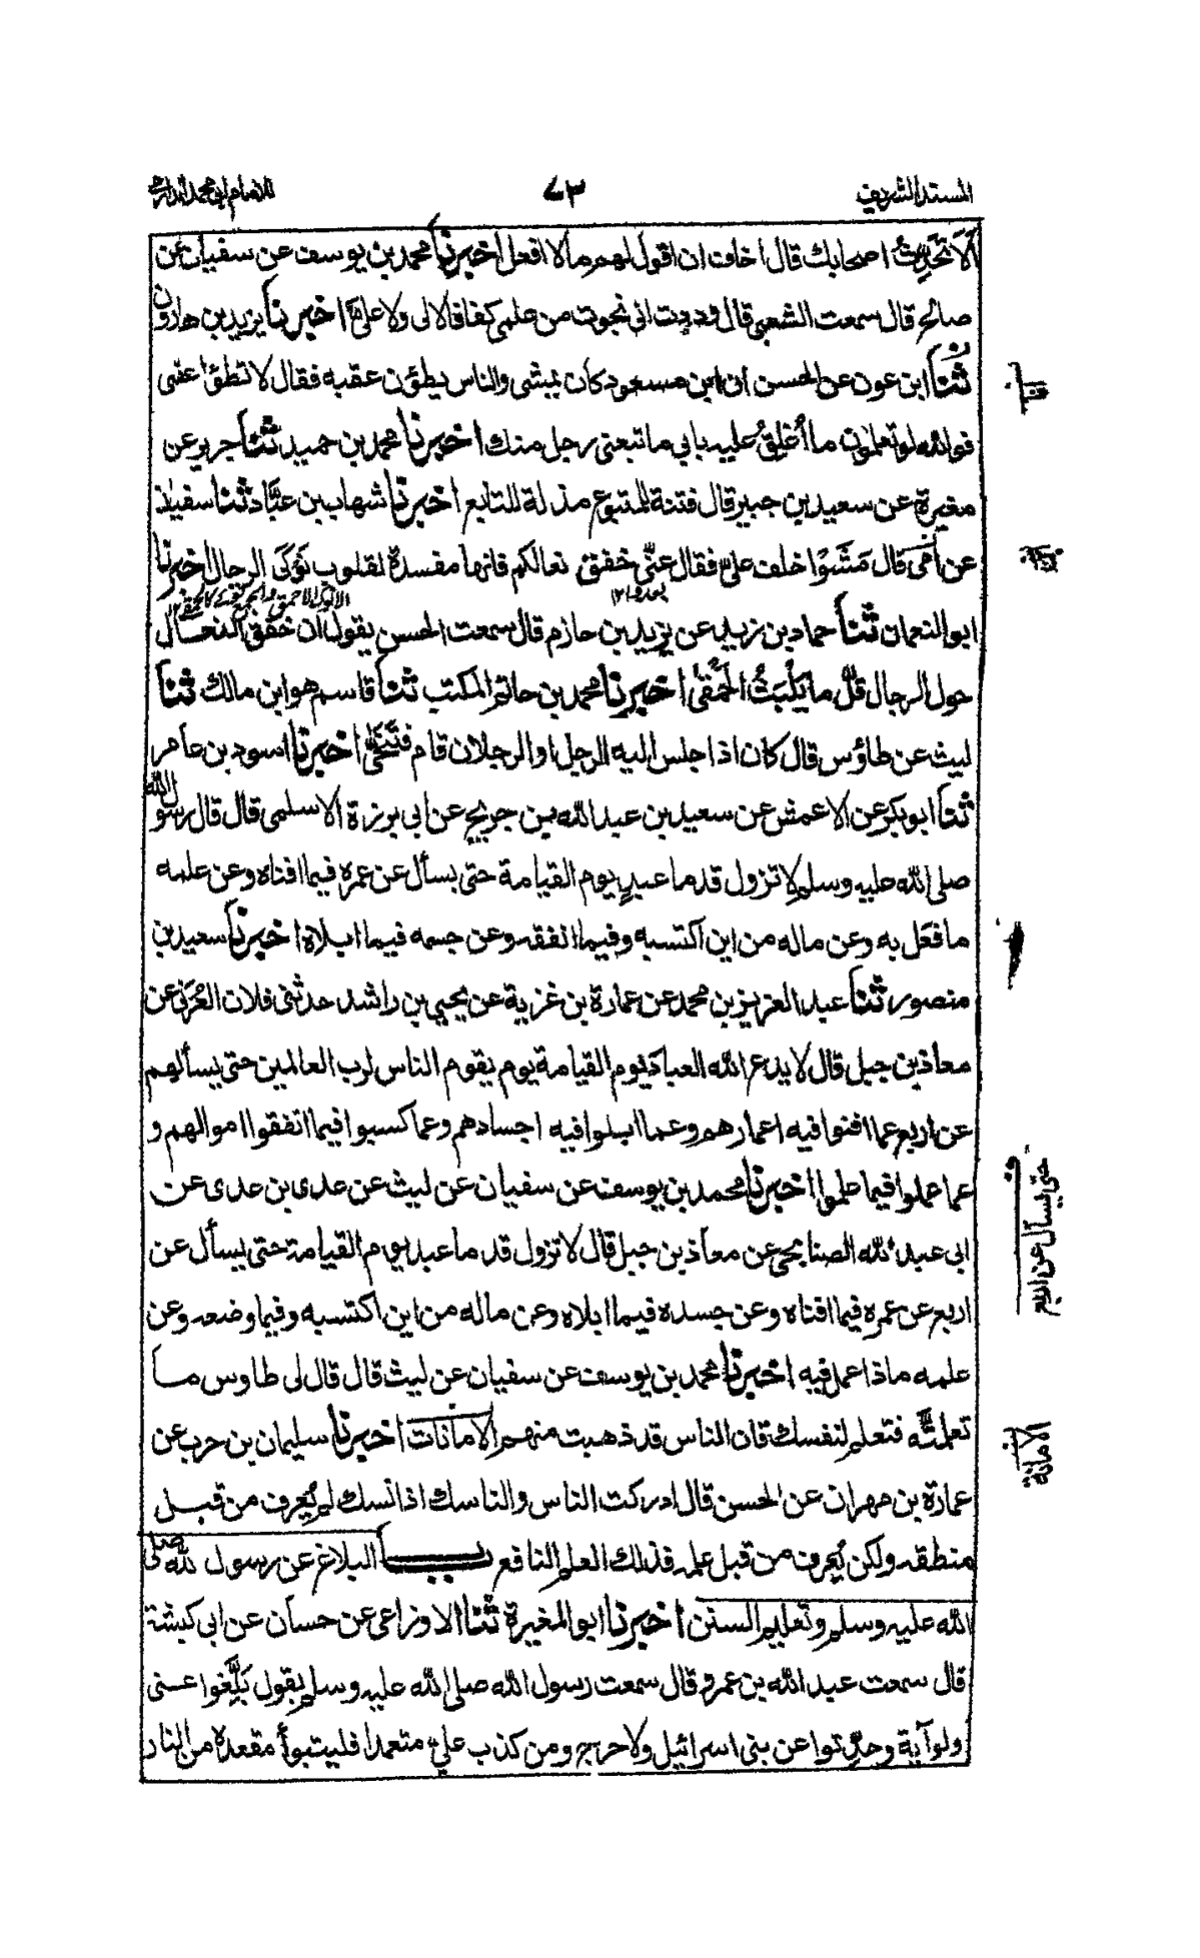 المسند الشريف
٧٣
للامام ابي محمد الدارمي
ألَا تُحَدِّثُ اصحابك قال اخاف ان اقول لهم ما لا افعل اخبرنا محمد بن يوسف عن سفيان عن
صالح قال سمعت الشعبي قال وددت اني نجوت من علمي كفافا لا لي ولا عليَّ اخبرنا يزيد بن هارون
ثنا ابن عون عن الحسن ان ابن مسعود كان يمشي والناس يطؤن عقبه فقال لا تطؤا عقبي
فوالله لو تعلمون ما أُغلِقُ عليه بابي ما تبعني رجل منكم اخبرنا محمد بن حميد ثنا جرير عن
مغيرة عن سعيد بن جبير قال فتنة للمتبوع مذلة للتابع اخبرنا شهاب بن عبَّاد ثنا سفيان
عن أمَي قال مَشَوْا خلف علي فقال عنّي خفق نعالكم فانها مفسدة لقلوب نَوكَى الرجال اخبرنا
ابو النعمان ثنا حماد بن زيد عن يزيد بن حازم قال سمعت الحسن يقول ان خفق النعال
حول الرجال قلَّ ما يُلْبِثُ الحَمْقىٰ اخبرنا محمد بن حاتم المكتب ثنا قاسم هو ابن مالك ثنا
ليث عن طاؤس قال كان اذا جلس اليه الرجل او الرجلان قام فتَنَحّٰى اخبرنا اسود بن عامر
ثنا ابو بكر عن الاعمش عن سعيد بن عبد الله بن جريج عن ابي برزة الاسلمي قال قال رسول الله
صلى الله عليه وسلم لا تزول قدما عبدٍ يوم القيامة حتى يسأل عن عمره فيما افناه وعن علمه
ما فعَل به وعن ماله من اين اكتسبه وفيما انفقه وعن جسمه فيما ابلاه اخبرنا سعيد بن
منصور ثنا عبد العزيز بن محمد عن عمارة بن غزية عن يحيى بن راشد حدثني فلان العُرَني عن
معاذ بن جبل قال لا يدع الله العباد يوم القيامة يوم يقوم الناس لرب العالمين حتى يسألهم
عن اربع عما افنوا فيه اعمارهم وعما ابلوا فيه اجسادهم وعما كسبوا فيما انفقوا اموالهم و
عما عملوا فيما علموا اخبرنا محمد بن يوسف عن سفيان عن ليث عن عدى بن عدى عن
ابى عبد الله الصنابحي عن معاذ بن جبل قال لا تزول قدما عبد يوم القيامة حتى يسأل عن
اربع عن عمره فيما افناه وعن جسده فيما ابلاه وعن ماله من اين اكتسبه وفيما وضعه وعن
علمه ماذا عمل فيه اخبرنا محمد بن يوسف عن سفيان عن ليث قال قال لي طاوس ما
تعلمتَ فتعلم لنفسك فان الناس قد ذهبت منهم الامانات اخبرنا سليمان بن حرب عن
عمارة بن مهران عن الحسن قال ادركت الناس والناسك اذا نسك لم يُعرف من قبل
منطقه ولكن يُعرف من قبل عمله فذلك العلم النافع باب البلاغ عن رسول الله صلى
الله عليه وسلم وتعليم السنن اخبرنا ابو المغيرة ثنا الاوزاعي عن حسان عن ابي كبشة
قال سمعت عبد الله بن عمرو قال سمعت رسول الله صلى الله عليه وسلم يقول بَلِّغوا عني
ولو آية وحدثوا عن بني اسرائيل ولا حرج ومن كذب عليَّ متعمدا فليتبوأ مقعده من النار
حتى يسأل عن اربع
الامانة